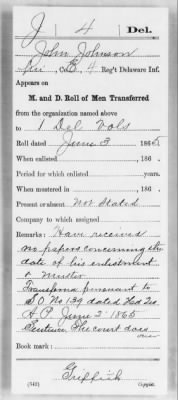 J 4 Del.
John Johnson
Co. E, 4 Reg't Delaware Inf.
Appears on
M. and D. Roll of Men Transferred
from the organization named above
to 1 Del Vols
Roll dated June 3, 1865
When enlisted , 186 .
Period for which enlisted years.
When mustered in , 186 .
Present or absent Not Stated
Company to which assigned
Remarks: Have received
no papers concerning the
date of his enlistment
or muster
Transferred pursuant to
S.O. No 139 dated Hd Qrs
A P. June 2' 1865
Court does
Book mark:
Griffith
(543) Copyist.